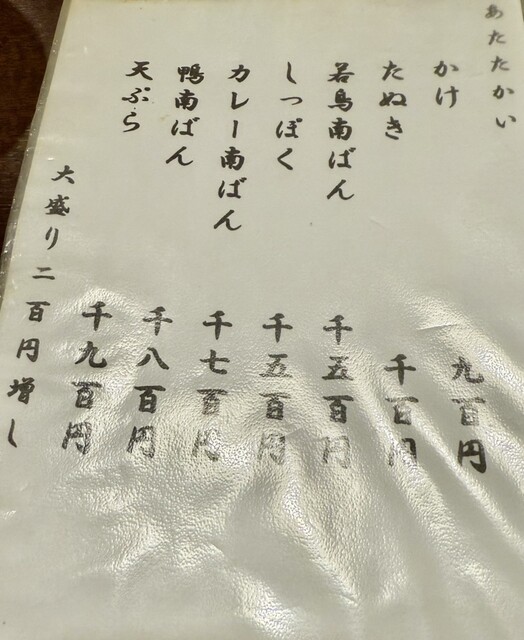 あたたかい
かけ 九百円
たぬき 千百円
若鳥南ばん 千五百円
しっぽく 千五百円
カレー南ばん 千七百円
鴨南ばん 千八百円
天ぷら 千九百円
大盛り二百円増し